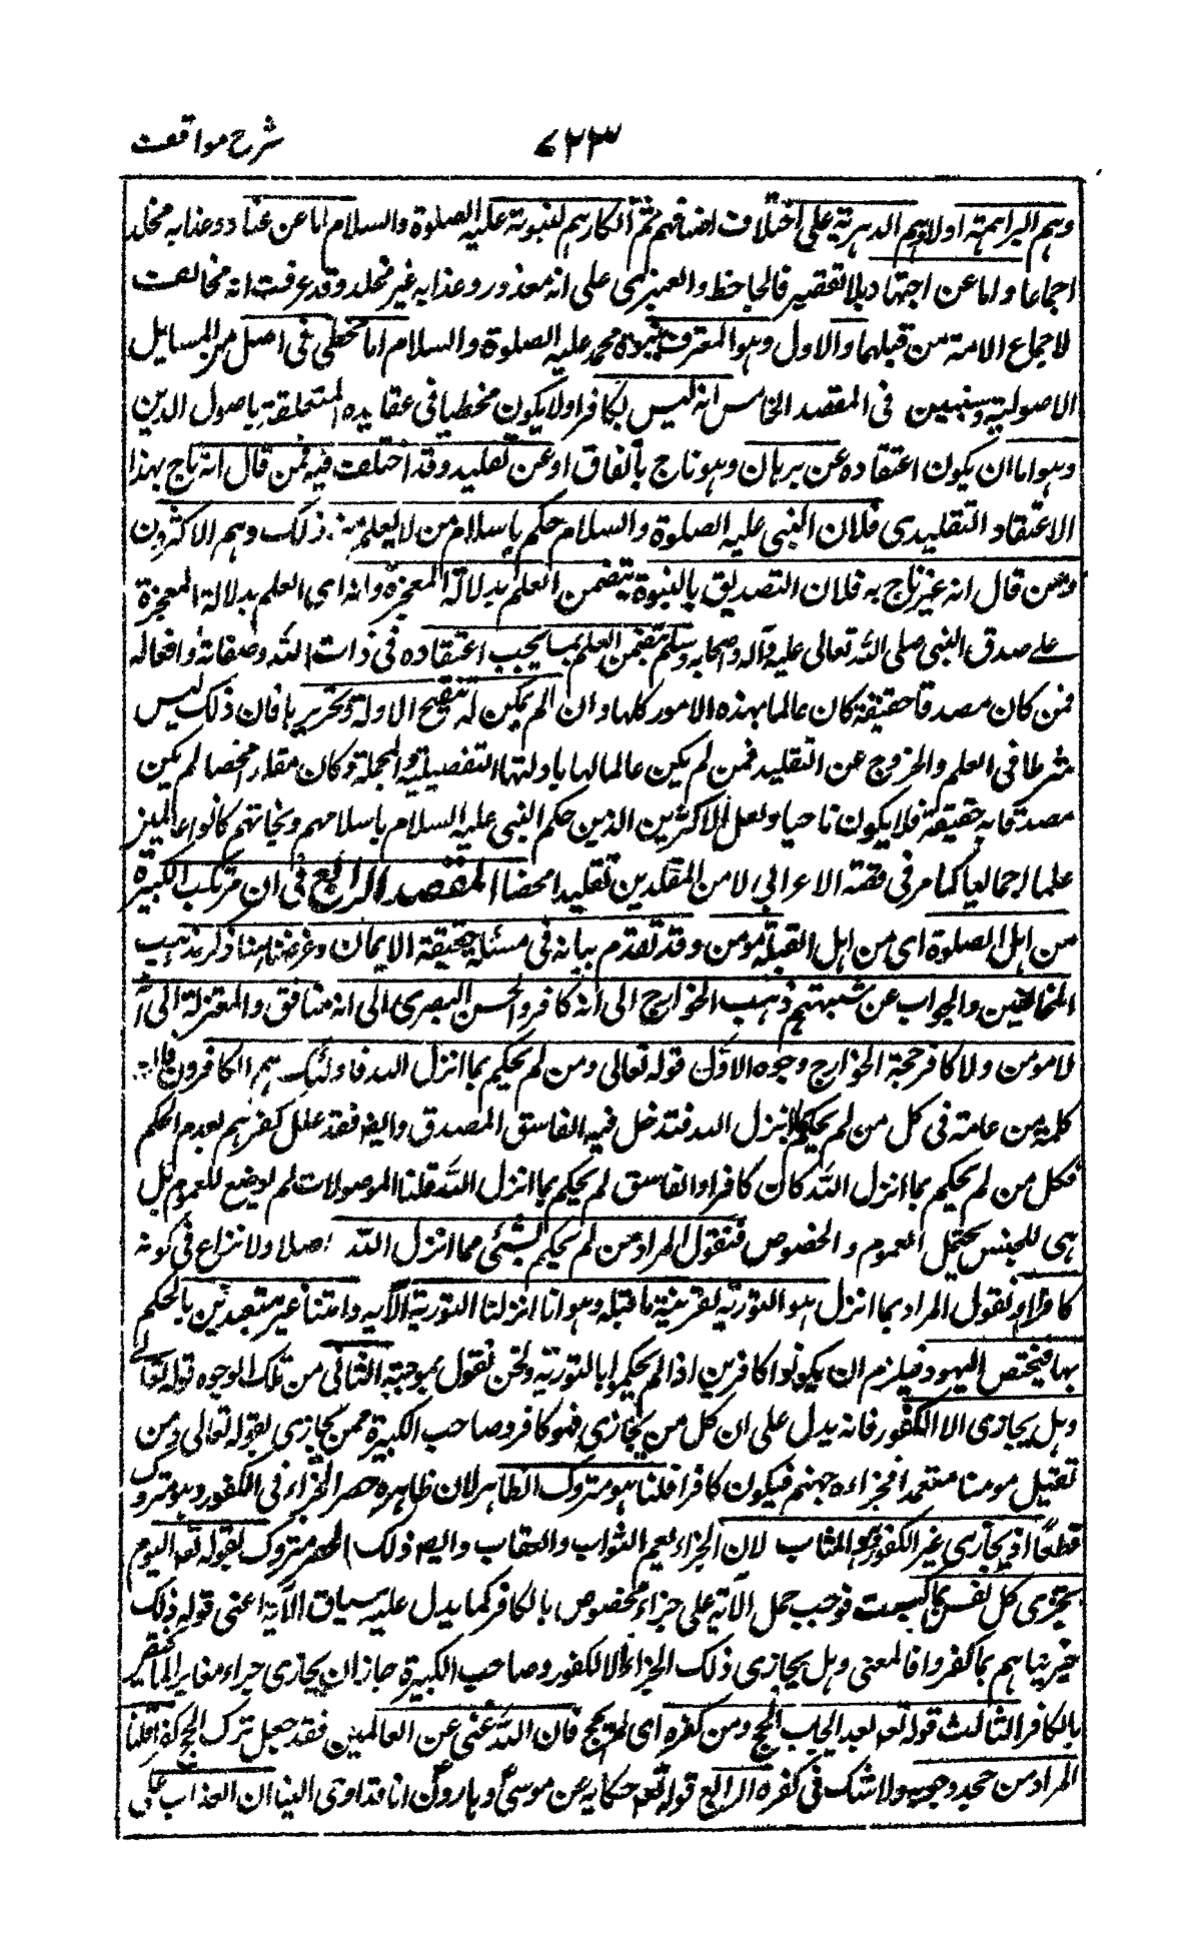 شرح مواقف ٧٢٣
وهم البراهمة اولا وهم الدهرية على اختلاف اصنافهم ثم انكارهم لنبوته عليه الصلوة والسلام اما عن عناد وعذابه مخلد
اجماعا واما عن اجتهاد بلا تقصير فالجاحظ والعنبرى على انه معذور وعذابه غير مخلد وقد عرفت انه مخالف
لاجماع الامة من قبلهما والاول وهو المعترف بنبوة محمد عليه الصلوة والسلام اما مخطى فى اصل من المسايل
الاصولية وسنبين فى المقصد الخامس انه ليس بكافر اولا يكون مخطيا فى عقايده المتعلقة باصول الدين
وهو اما ان يكون اعتقاده عن برهان وهو ناج باتفاق او عن تقليد وقد اختلف فيه فمن قال انه ناج بهذا
الاعتقاد التقليدى فلان النبى عليه الصلوة والسلام حكم باسلام من لا يعلم منه ذلك وهم الاكثرون
ومن قال انه غير ناج به فلان التصديق بالنبوة يتضمن العلم بدلالة المعجزة وانه اى العلم بدلالة المعجزة
على صدق النبى صلى الله تعالى عليه وآله وصحابه وسلم يتضمن العلم بما يجب اعتقاده فى ذات الله وصفاته وافعاله
فمن كان مصدقا حقيقة كان عالما بهذه الامور كلها وان لم يكن له تنقيح الادلة وتحريرها فان ذلك ليس
شرطا فى العلم والخروج عن التقليد فمن لم يكن عالما لها بادلتها التفصيلية والمجملة وكان مقلدا محضا لم يكن
مصدقا به حقيقة فلا يكون ناجيا ولعل الاكثرين الذين حكم النبى عليه السلام باسلامهم ونجاتهم كانوا عالمين
علما اجماليا كما مر فى قصة الاعرابى لا من المقلدين تقليدا محضا المقصد الرابع فى ان مرتكب الكبيرة
من اهل الصلوة اى من اهل القبلة مومن وقد تقدم بيانه فى مسئلة حقيقة الايمان وغرضنا هنا ذكر مذهب
المخالفين والجواب عن شبهتهم ذهب الخوارج الى انه كافر والحسن البصرى الى انه منافق والمعتزلة الى انه
لا مومن ولا كافر حجة الخوارج وجوه الاول قوله تعالى ومن لم يحكم بما انزل الله فاولئك هم الكافرون فان
كلمة من عامة فى كل من لم يحكم بما انزل الله فتدخل فيه الفاسق المصدق وايضا فقد علل كفرهم بعدم الحكم
فكل من لم يحكم بما انزل الله كان كافرا والفاسق لم يحكم بما انزل الله قلنا الموصولات لم توضع للعموم بل
هى للجنس يحتمل العموم والخصوص فنقول المراد من لم يحكم بشئى مما انزل الله اصلا ولا نزاع فى كونه
كافرا او نقول المراد بما انزل هو التورية بقرينة ما قبله وهو انا انزلنا التورية الآيه وامتنا غير متعبدين بالحكم
بها فيختص اليهود فيلزم ان يكونوا كافرين اذا لم يحكموا بالتورية ونحن نقول بموجبه الثانى من تلك الوجوه قوله تعالى
وهل يجازى الا الكفور فانه يدل على ان كل من يجازى فهو كافر وصاحب الكبيرة ممن يجازى بقوله تعالى ومن
يقتل مومنا متعمدا فجزاءه جهنم فيكون كافرا قلنا هو متروك الظاهر لان ظاهره حصر الجزاء فى الكفور وهو متروك
قطعا اذ يجازى غير الكفور وهو المثاب لان الجزاء يعم الثواب والعقاب وايضه ذلك الحصر متروك لقوله تعه اليوم
تجزى كل نفس بما كسبت فوجب حمل الآية على جزاء مخصوص بالكافر كما يدل عليه سياق الآية اعنى قوله ذلك
جزيناهم بما كفروا فالمعنى وهل يجازى ذلك الجزاء الا الكفور وصاحب الكبيرة جاز ان يجازى جزاء مغايرا لما يختص
بالكافر الثالث قوله تعه بعد ايجاب الحج ومن كفر اى لم يحج فان الله غنى عن العالمين فقد جعل ترك الحج كفرا قلنا
المراد من جحد وجوبه ولا شك فى كفره الرابع قوله تعه حكاية عن موسى وهارون انا قد اوحى الينا ان العذاب على